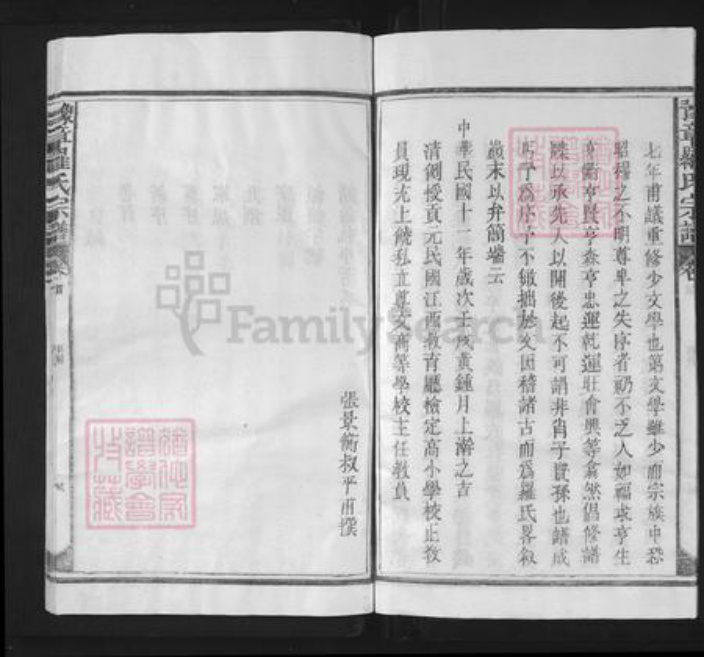 豫章羅氏宗譜 卷
七年甫議重修少文學也第文學雖少而宗族中恐
昭穆之不明尊卑之失序者礽不乏人如福 亨生
亨衡亨賢亨泰亨忠運乾運壯會興等翕然倡修譜
牒以承先人以開後起不可謂非肖子賢孫也譜成
丐予為序予不媿拙於文因稽諸古而為羅氏畧叙
巔末以弁簡端云
中華民國十一年歲次壬戌黃鍾月上澣之吉
清劍授貢元民國江西教育廳檢定高小學校正教
員現充上饒私立尊文商等學校主任教員
張景衡叔平甫撰
豫章羅氏宗譜 卷 首
FamilySearch